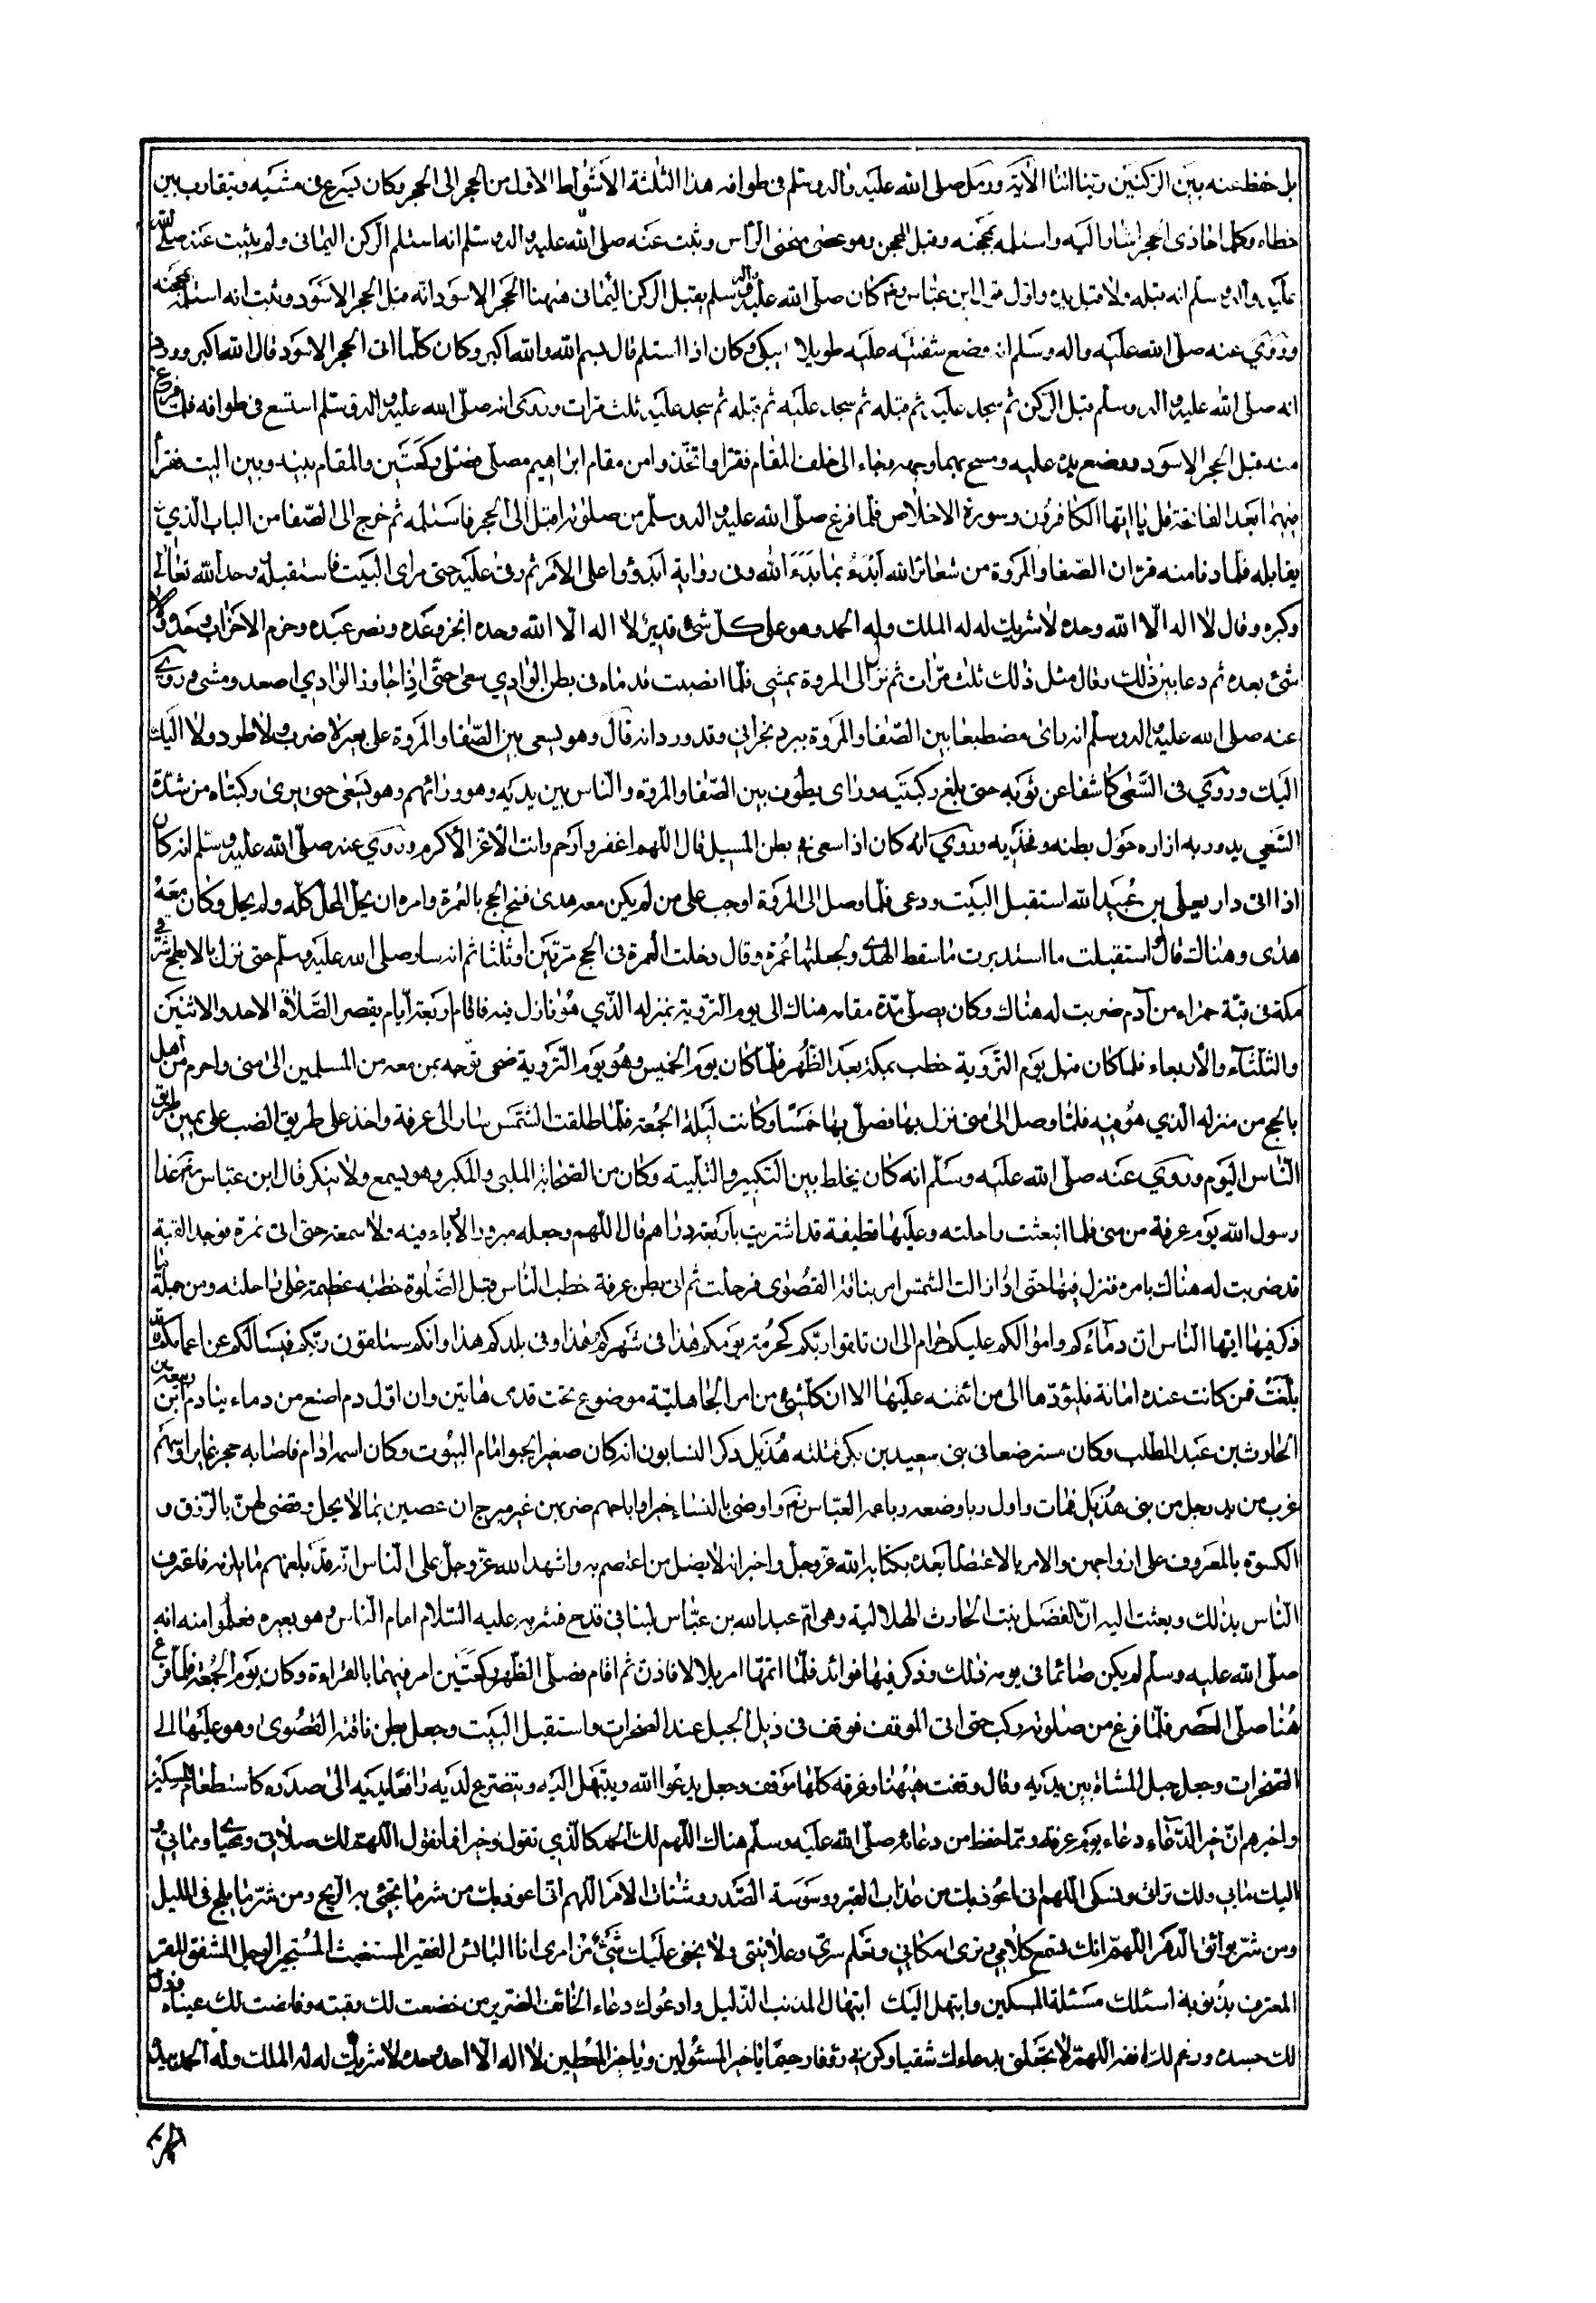 بل حفظ عنه بين الركنين ربنا اتنا الآية ورمل صلى الله عليه واله وسلم في طوافه هذا الثلثة الأشواط الاول من الحجر الى الحجر وكان يسرع في مشيه ويتقارب بين
خطاه وكلما حاذى الحجر اشار اليه واستلمه بمحجنه وقبل المحجن وهو عصى منحنى الرأس وثبت عنه صلى الله عليه واله وسلم انه استلم الركن اليماني ولم يثبت عنه صلى الله
عليه واله وسلم انه قبله ولا قبل يده واول قول ابن عباس رض كان صلى الله عليه واله وسلم يقبل الركن اليماني فيهنا الحجر الاسود انه قبل الحجر الاسود وثبت انه استلمه بمحجنه
وروي عنه صلى الله عليه واله وسلم انه وضع شفتيه عليه طويلا يبكى وكان اذا استلم قال بسم الله والله اكبر وكان كلما اتى الحجر الاسود قال الله اكبر وورد
انه صلى الله عليه واله وسلم قبل الركن ثم سجد عليه ثم قبله ثم سجد عليه ثم قبله ثم سجد عليه ثلث مرات وروى انه صلى الله عليه واله وسلم استسع في طوافه فلما فرغ
منه قبل الحجر الاسود ووضع يده عليه ومسح بهما وجهه وجاء الى خلف المقام فقرا واتخذوا من مقام ابراهيم مصلى فصلى ركعتين والمقام بينه وبين البيت فقرأ
فيهما بعد الفاتحة قل يا ايها الكافرون وسورة الاخلاص فلما فرغ صلى الله عليه واله وسلم من صلوته اقبل الى الحجر فاستلمه ثم خرج الى الصفا من الباب الذي
يقابله فلما دنا منه قرا ان الصفا والمروة من شعائر الله أبدء بما بدء الله وفى رواية ابدؤا على الامر ثم رقى عليه حتى راى البيت فاستقبله وحد الله تعالى
وكبره وقال لا اله الا الله وحده لا شريك له له الملك وله الحمد وهو على كل شئ قدير لا اله الا الله وحده انجز وعده ونصر عبده وهزم الاحزاب وحده ولا
شئ بعده ثم دعا بين ذلك وقال مثل ذلك ثلث مرات ثم نزل الى المروة يمشى فلما انصبت قدماه في بطن الوادي سعى حتى اذا جاوز الوادي اصعد ومشى وروى
عنه صلى الله عليه واله وسلم انه راى مضطبعا بين الصفا والمروة ببرد نجراني وقد ورد انه قال وهو يسعى بين الصفا والمروة على بعير لا ضرب ولا طرد ولا اليك
اليك وروي في السعى كاشفا عن ثوبه حتى بلغ ركبتيه وراى يطوف بين الصفا والمروة والناس بين يديه وهو ورائهم وهو يسعى حتى يرى ركبتاه من شدة
السعي يدور به ازاره حول بطنه وفخذيه وروي انه كان اذا سعى في بطن المسيل قال اللهم اغفر وارحم وانت الأعز الأكرم وروي عنه صلى الله عليه وسلم انه كان
اذا اتى دار يعلى بن عبيد الله استقبل البيت ودعى فلما وصل الى المروة اوجب على من لم يكن معه هدى فسخ الحج بالعمرة وامره ان يحل المحل كله ولم يحل وكان معه
هدى وهناك قال لو استقبلت ما استدبرت ما سقط الهدى ولجعلتها عمرة وقال دخلت العمرة في الحج مرتين او ثلثا ثم انه سار صلى الله عليه وسلم حتى نزل بالابطح شرقي
مكة في قبة حمراء من آدم ضربت له هناك وكان يصلى مدة مقامه هناك الى يوم التروية بمنزله الذي هو نازل فيه فاقام اربعة أيام يقصر الصلاة الاحد والاثنين
والثلثاء والأربعاء فلما كان قبل يوم التروية خطب بمكة بعد الظهر فلما كان يوم الخميس وهو يوم التروية ضحى توجه بمن معه من المسلمين الى منى واحرم من اهل
بالحج من منزله الذي هو فيه فلما وصل الى منى نزل بها فصلى بها خمسا وكانت ليلة الجمعة فلما طلعت الشمس سار الى عرفة واخذ على طريق الضب على يمين طريق
الناس اليوم وروي عنه صلى الله عليه وسلم انه كان يخلط بين التكبير والتلبيته وكان من الصحابة الملبى والمكبر وهو يسمع ولا ينكر قال ابن عباس رض غدا
رسول الله يوم عرفة من منى فلما انبعثت راحلته وعليها قطيفة قد اشتريت باربعة دراهم قال اللهم وجعله مبرورا لا رياء فيه ولا سمعة حتى اتى نمرة فوجد القبة
قد ضربت له هناك بامره فنزل فيها حتى اذا زالت الشمس امر بناقة القصوى فرحلت ثم اتى بطن عرفة خطب الناس قبل الصلوة خطبه عظيمة على راحلته ومن جملة ما
ذكر فيها ايها الناس ان دماءكم واموالكم عليكم حرام الى ان تلقوا ربكم كحرمة يومكم هذا في شهركم هذا وفي بلدكم هذا وانكم ستلقون ربكم فيسألكم عن اعمالكم وقد
بلغت فمن كانت عنده امانة فليؤدها الى من ائتمنه عليها الا ان كل شئ من امر الجاهلية موضوع تحت قدمي هاتين وان اول دم اصنع من دماء بنا دم ابن ربيعة بن
الحارث بن عبد المطلب وكان مسترضعا في بني سعيد بن بكر فقتلته هذيل ذكر النسابون انه كان صغيرا يحبوا امام البيوت وكان اسمه ادام فاصابه حجر غاير او سهم
غرب من يد رجل من بنى هذيل فمات واول ربا وضعه ربا عمه العباس رض واوصى بالنساء خيرا واباحهم ضربهن غير مبرج ان عصين بما لا يحل وقضى لهن بالرزق و
الكسوة بالمعروف على ازواجهن والامر بالاعتصام بعده بكتاب الله عز وجل واخبر انه لا يضل من اعتصم به واشهد الله عز وجل على الناس انه قد بلغهم ما يلزمه فاعترف
الناس بذلك وبعثت اليه ان الفضل بنت الحارث الهلالية وهى ام عبد الله بن عباس لبنا في قدح فشربه عليه السلام امام الناس وهو بعيره فعلموا منه انه
صلى الله عليه وسلم لم يكن صائما في يومه ذلك وذكر فيها فوائد فلما اتمها امر بلالا فاذن ثم اقام فصلى الظهر ركعتين امر فيهما بالقراءة وكان يوم الجمعة فلما فرغ
هنا صلى العصر فلما فرغ من صلوته ركب حتى اتى الموقف فوقف في ذيل الجبل عند الصخرات واستقبل البيت وجعل بطن ناقته القصوى وهو عليها الى
الصخرات وجعل جبل المشاة بين يديه وقال وقفت ههنا وعرفة كلها موقف وجعل يدعوا الله ويبتهل اليه ويتضرع لديه رافعا يديه الى صدره كاستطعام المسكين
واخبرهم ان خير الدعاء دعاء يوم عرفة ومما حفظ من دعائه صلى الله عليه وسلم هناك اللهم لك الحمد كالذي نقول وخيرا مما نقول اللهم لك صلاتي ومحياي ومماتي و
اليك مابي ولك تراثى ونسكى اللهم انى اعوذ بك من عذاب القبر ووسوسة الصدر وشتات الامر اللهم انى اعوذ بك من شر ما تجئ به الريح ومن شر ما يلج في الليل
ومن شر بوائق الدهر اللهم انك تسمع كلامي وترى مكاني وتعلم سري وعلانيتى ولا يخفى عليك شئ من امرى انا البائس الفقير المستغيث المستجير الوجل المشفق المقر
المعترف بذنوبه اسئلك مسئلة المسكين وابتهل اليك ابتهال المذنب الذليل وادعوك دعاء الخائف الضرير من خضعت لك رقبته وفاضت لك عيناه وذل
لك جسده ورغم لك انفه اللهم لا تجعلنى بدعاءك شقيا وكن بي رؤفا رحيما يا خير المسئولين ويا خير المعطين لا اله الا الله وحده لا شريك له له الملك وله الحمد بيده